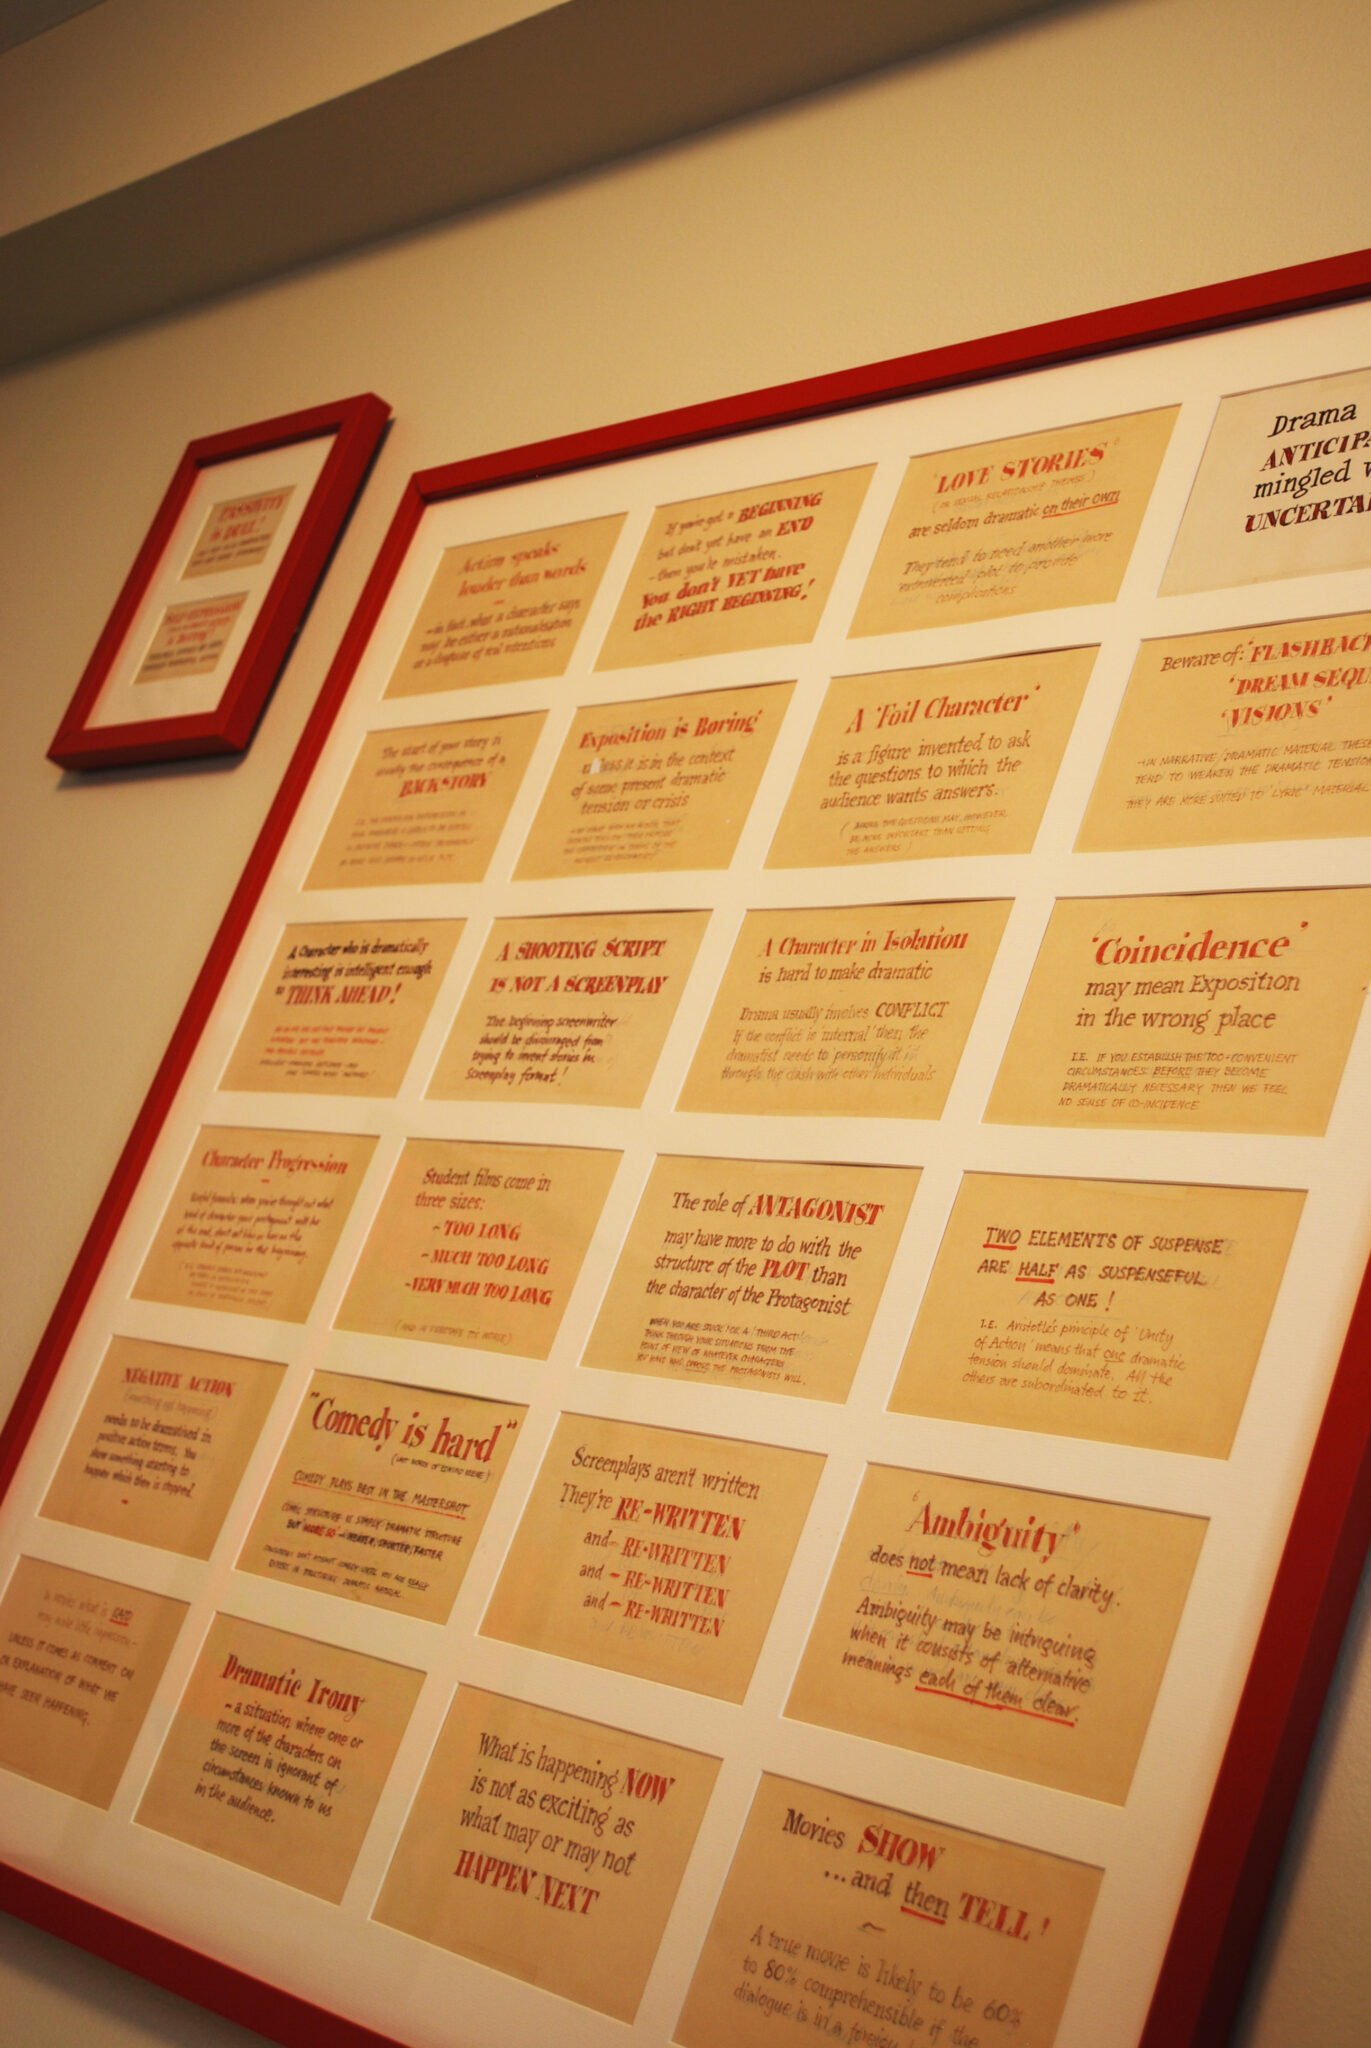 PASSIVITY
is DULL!
Action speaks
louder than words
– in fact, what a character says
may be either a rationalisation
or a disguise of real intentions
If you've got a BEGINNING
but don't yet have an END
– then you're mistaken.
You don't YET have
the RIGHT BEGINNING!
'LOVE STORIES'
(OR SEXUAL RELATIONSHIP THEMES)
are seldom dramatic on their own
They tend to need another more
'extroverted' plot to provide
complications
Drama
ANTICIPA
mingled w
UNCERTAI
The start of your story is
usually the consequence of a
BACKSTORY
Exposition is Boring
unless it is in the context
of some present dramatic
tension or crisis
A 'Foil Character'
is a figure invented to ask
the questions to which the
audience wants answers.
(ASKING THE QUESTIONS MAY, HOWEVER,
BE MORE IMPORTANT THAN GETTING
THE ANSWERS)
Beware of: 'FLASHBACK
'DREAM SEQU
'VISIONS'
– IN NARRATIVE/DRAMATIC MATERIAL THESE
TEND TO WEAKEN THE DRAMATIC TENSION
THEY ARE MORE SUITED TO 'LYRIC' MATERIAL
A Character who is dramatically
interesting is intelligent enough
to THINK AHEAD!
A SHOOTING SCRIPT
IS NOT A SCREENPLAY
The beginning screenwriter
should be discouraged from
trying to invent stories in
screenplay format!
A Character in Isolation
is hard to make dramatic
Drama usually involves CONFLICT
If the conflict is internal then the
dramatist needs to personify it
through the clash with other individuals
'Coincidence'
may mean Exposition
in the wrong place
I.E. IF YOU ESTABLISH THE TOO-CONVENIENT
CIRCUMSTANCES BEFORE THEY BECOME
DRAMATICALLY NECESSARY THEN WE FEEL
NO SENSE OF CO-INCIDENCE
Character Progression
Useful formula: when you've thought out what
kind of character your protagonist will be
at the end, start him or her as the
opposite kind of person in the beginning.
Student films come in
three sizes:
– TOO LONG
– MUCH TOO LONG
– VERY MUCH TOO LONG
The role of ANTAGONIST
may have more to do with the
structure of the PLOT than
the character of the Protagonist
WHEN YOU ARE STUCK FOR A THIRD ACT
THINK THROUGH YOUR SITUATIONS FROM THE
POINT OF VIEW OF WHATEVER CHARACTERS
YOU HAVE WHO OPPOSE THE PROTAGONISTS WILL.
TWO ELEMENTS OF SUSPENSE
ARE HALF AS SUSPENSEFUL
AS ONE!
I.E. Aristotle's principle of 'Unity
of Action' means that one dramatic
tension should dominate. All the
others are subordinated to it.
NEGATIVE ACTION
(something not happening)
needs to be dramatised in
positive action terms. You
show something starting to
happen which then is stopped.
"Comedy is hard"
(LAST WORDS OF EDMUND KEENE)
COMEDY PLAYS BEST IN THE MASTERSHOT
COMIC STRUCTURE IS SIMPLY DRAMATIC STRUCTURE
BUT 'MORE SO' – NEATER, SHORTER, FASTER
Screenplays aren't written
They're RE-WRITTEN
and – RE-WRITTEN
and – RE-WRITTEN
and – RE-WRITTEN
'Ambiguity'
does not mean lack of clarity.
Ambiguity may be intriguing
when it consists of alternative
meanings each of them clear.
UNLESS IT COMES AS COMMENT ON
OR EXPLANATION OF WHAT WE
HAVE SEEN HAPPENING.
Dramatic Irony
– a situation where one or
more of the characters on
the screen is ignorant of
circumstances known to us
in the audience.
What is happening NOW
is not as exciting as
what may or may not
HAPPEN NEXT
Movies SHOW
...and then TELL!
A true movie is likely to be 60%
to 80% comprehensible if the
dialogue is in a foreign